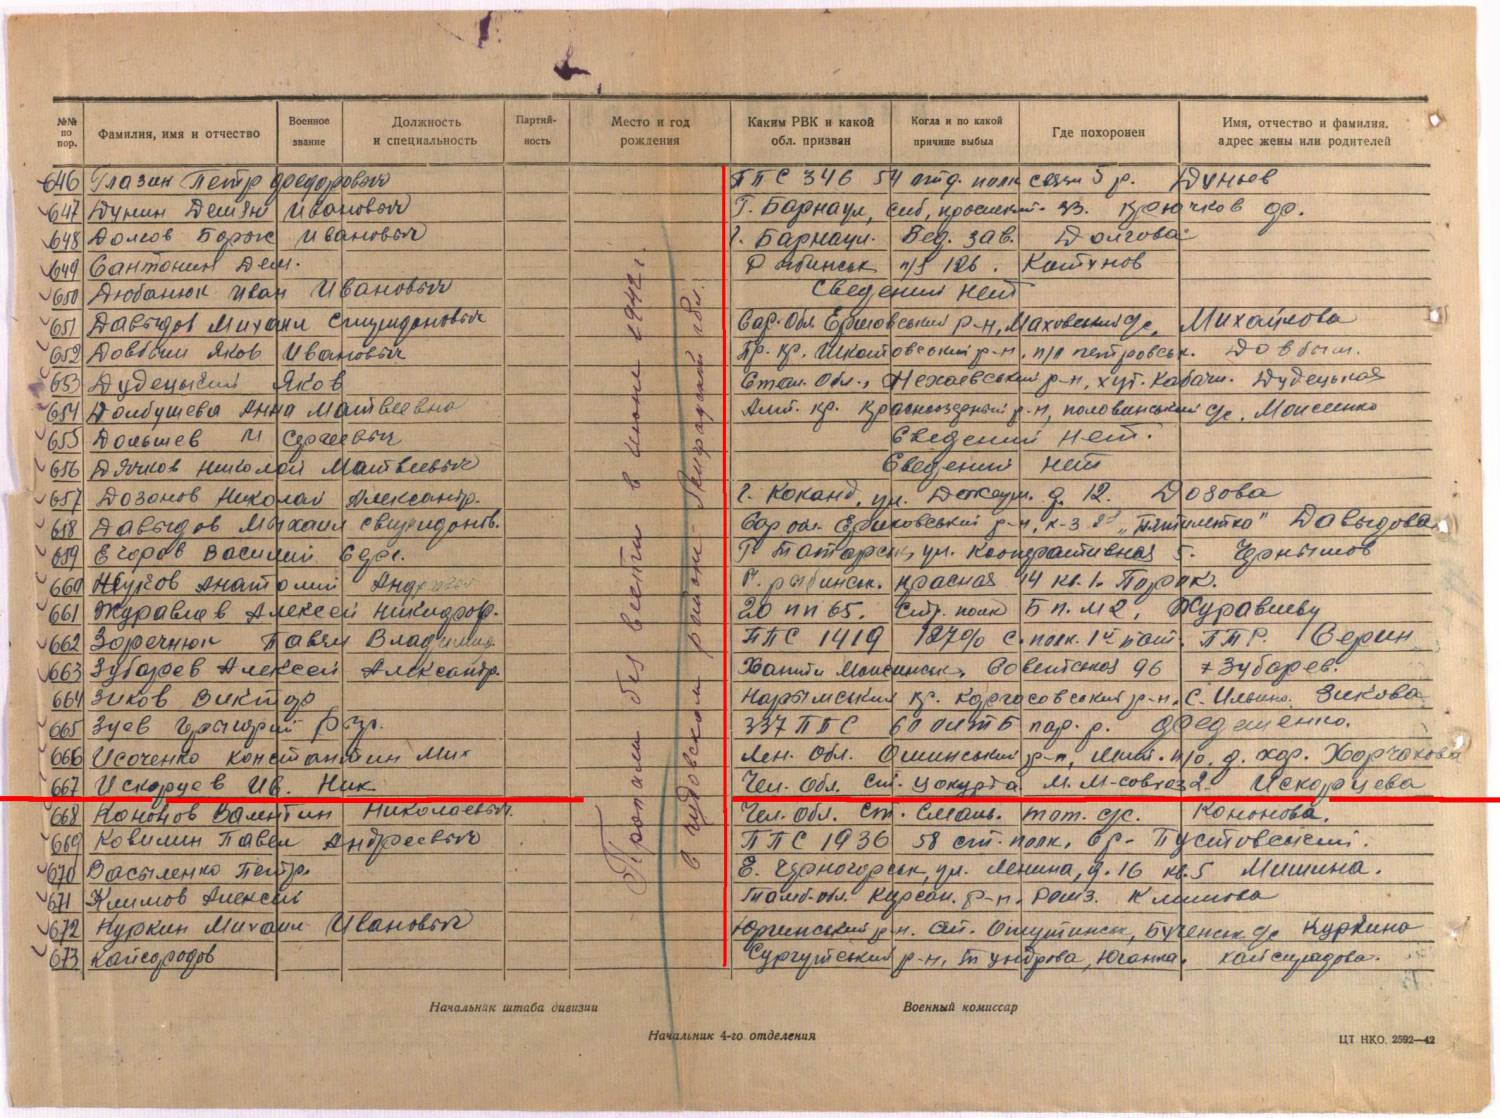 №№ по пор.
Фамилия, имя и отчество
Военное звание
Должность и специальность
Партийность
Место и год рождения
Каким РВК и какой обл. призван
Когда и по какой причине выбыл
Где похоронен
Имя, отчество и фамилия, адрес жены или родителей
646 Глазин Петр Федорович ППС 346 54 отд. полк связи 5 р. Дуньев
647 Дунин Демян Иванович Г. Барнаул, сиб, 33. Крючков ф.
648 Долгов Борис Иванович г. Барнаул. Вед. зав. Долгова
649 Сантонин Дем. п/я 126. Катунов
650 Дюбанюк Иван Иванович Сведений нет
651 Давыдов Михаил Спиридонович Сар. Обл Ершовський р-н, Маховський с/с, Михайлова
652 Довбыш Яков Иванович Пр. кр. Шкотовський р-н. п/о петровськ. Довбыш.
653 Дудецький Яков Стал. Обл., Нехаевський р-н, хут. Дудецькая
654 Долбушева Анна Матвеевна Алт. кр. Краснозерный р-н, половинський с/с. Моисеенко
655 Долышев И Сергеевич Сведений нет.
656 Дячков Николай Матвеевич Сведений нет
657 Дозонов Николай Александр. г. Коканд, ул. д. 12. Дозова
658 Давыдов Михаил Свиридонов. Сар обл. р-н, к-з "Пятилетка" Давыдова
659 Егоров Василий Г. Татарск, ул. Кооперативная 5. Чернышов
660 Жуков Анатолий г. рыбинск. Красная 14 кв. 1.
661 Журавлев Алексей Никифор. 20 пп 65. Стр. полк Б п. м2, Журавлеву
662 Заречнюк Павел Владимир. ППС 1419 1270 с. полк. 1й бат. ПТР. Серин
663 Зубарев Алексей Александр. Ханти Мансийськ, Советская 96 Зубарев.
664 Зиков Виктор Нарымський кр. Каргосовський р-н, С. Ильино. Зикова
665 Зуев Григорий 337 ППС 60 пар. р. Федяшенко.
666 Исоченко Константин Мих Лен. Обл. р-н, п/о, д. Хорчакова
667 Искорцев Ив. Ник Чел. Обл. ст. М. М-совхоз 2. Искорцева
668 Кононов Валентин Николаевич. Чел. Обл. ст. с/с. Кононова.
669 Ковилин Павел Андреевич ППС 1936 58 стр. полк, Пустовський.
670 Васыленко Петр. Г. Черногорськ, ул. Ленина, д. 16 кв. 5 Мишина.
671 Климов Алексей Тамб. обл. р-н. Климова
672 Куркин Михаил Иванович Юргинський р-н. ст. Омутинск, с/с Куркина
673 Кайгородов Сургутський р-н, Тундрова, Юганка. Кайгородова.
Пропали без вести в июне 1942 г.
в Чудовском районе - Ленинградской обл.
Начальник штаба дивизии
Военный комиссар
Начальник 4-го отделения
ЦТ НКО. 2592—42